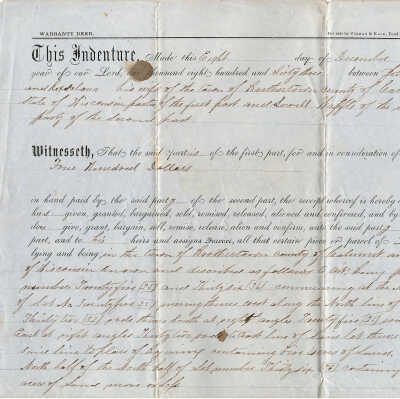 WARRANTY DEED.
This Indenture, Made this Eight day of December
year of our Lord, thousand eight hundred and Sixty three between
his wife of the town of Brothertown County of
State of Wisconsin parties of the first part and Lowell of the
party of the second part
Witnesseth, That the said Parties of the first part, for and in consideration of
Four Hundred Dollars
in hand paid by the said party of the second part, the receipt whereof is hereby
has given, granted, bargained, sold, remised, released, aliened and confirmed, and by
do give, grant, bargain, sell, remise, release, alien and confirm, unto the said party
part, and to his heirs and assigns Forever, all that certain piece or parcel of
lying and being in the town of Brothertown County of Calumet and
of Wisconsin known and described as follows to wit being
number Twenty five and Thirty Six commencing at the
of Lot No Twenty five running thence east along the North line of
Thirty two rods thence South at right angles Twenty five
East at right angles Thirty two rods East line of said Lot thence
line to place of beginning containing five acres of Land
North half of the North half of Lot number Thirty six containing
acres of Land more or less